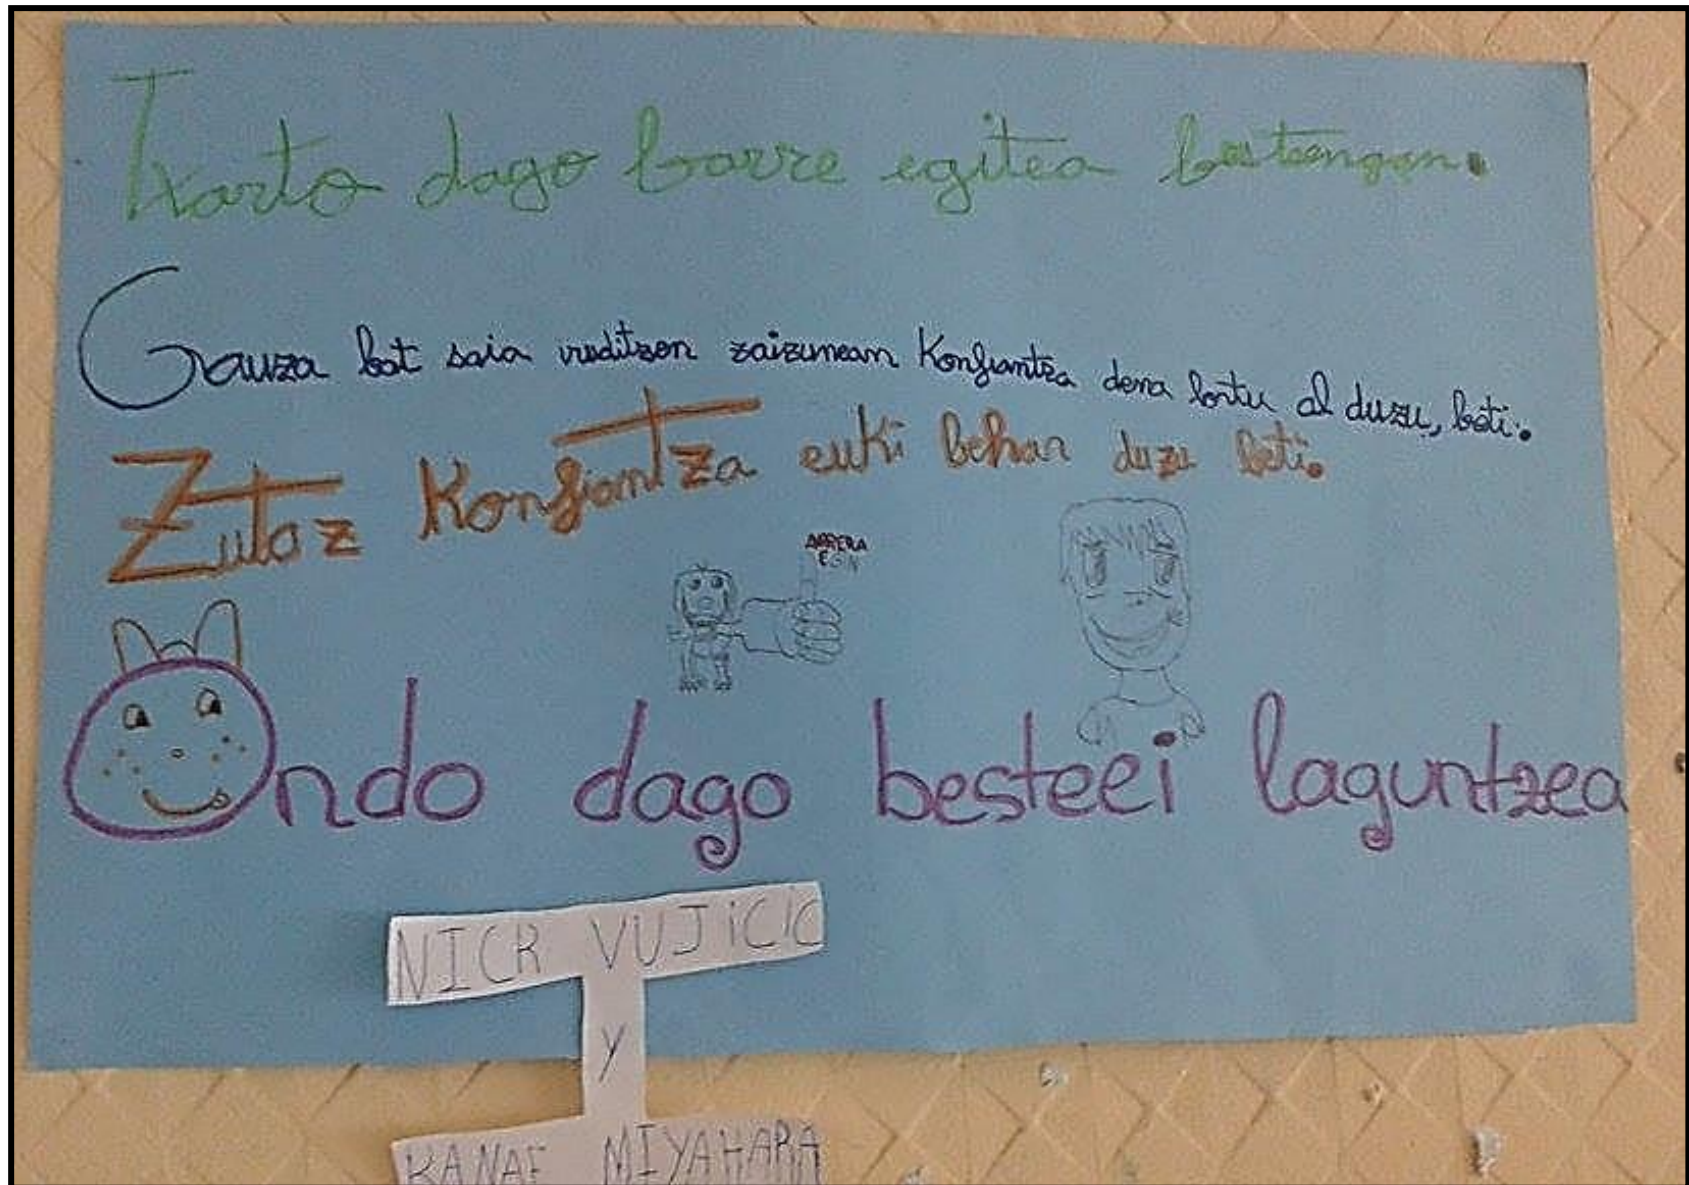 Txarto dago barre egitea besteengan.
Gauza bat saia iruditzen zaizunean Konfiantza dena lortu al duzu, beti.
Zutaz Konfiantza euki behar duzu beti.
AURRERA
EGIN
Ondo dago besteei laguntzea
NICK VUJICIC
Y
KANAE MIYAHARA